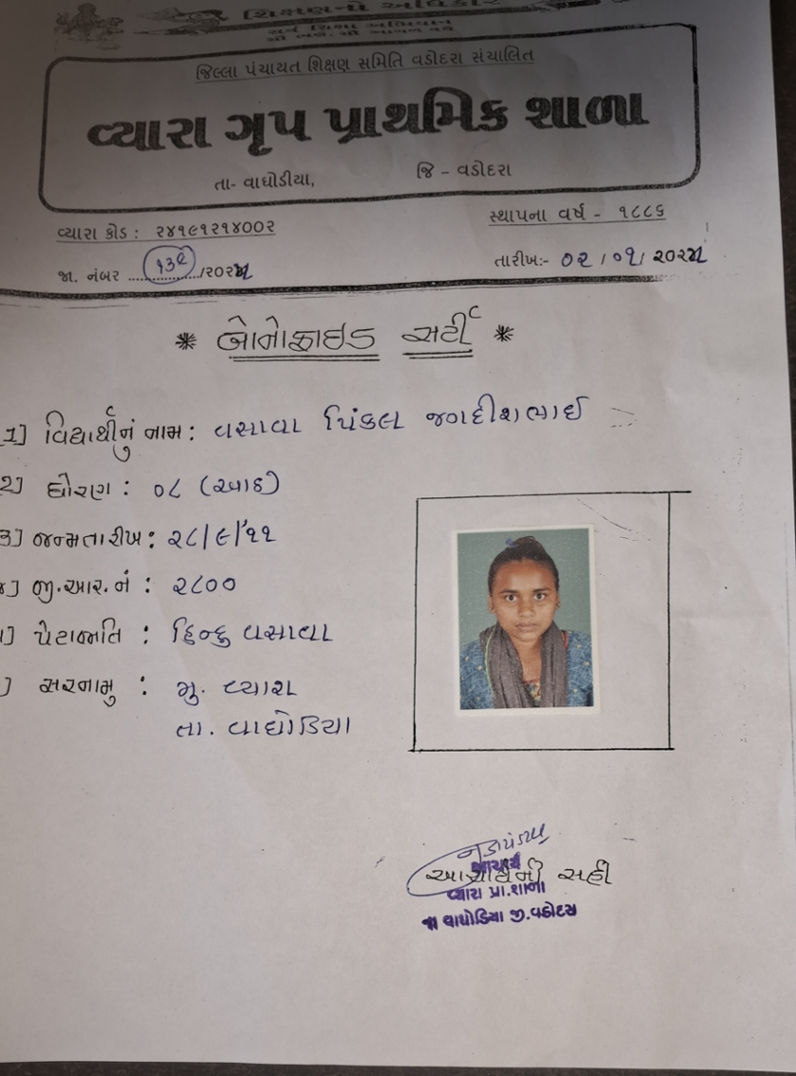 શિક્ષણનો અધિકાર
સર્વ શિક્ષા અભિયાન
જિલ્લા પંચાયત શિક્ષણ સમિતિ વડોદરા સંચાલિત
વ્યારા ગૃપ પ્રાથમિક શાળા
તા- વાઘોડીયા, જિ - વડોદરા
વ્યારા કોડ : ૨૪૧૯૧૨૧૪૦૦૨ સ્થાપના વર્ષ - ૧૮૮૬
જા. નંબર ..૧૩૯../૨૦૨૫ તારીખ:- ૦૨/૦૧/૨૦૨૫
* બોનોફાઇડ સર્ટી *
1] વિદ્યાર્થીનું નામ : વસાવા પિંકલ જગદીશભાઈ
૨] ધોરણ : ૦૮ (આઠ)
૩] જન્મતારીખ : ૨૮/૯/'૧૧
૪] જી.આર.નં : ૨૮૦૦
] પેટાજાતિ : હિન્દુ વસાવા
] સરનામુ : મુ. વ્યારા
તા. વાઘોડિયા
આચાર્યની સહી
આચાર્ય
વ્યારા પ્રા.શાળા
તા વાઘોડિયા જી.વડોદરા